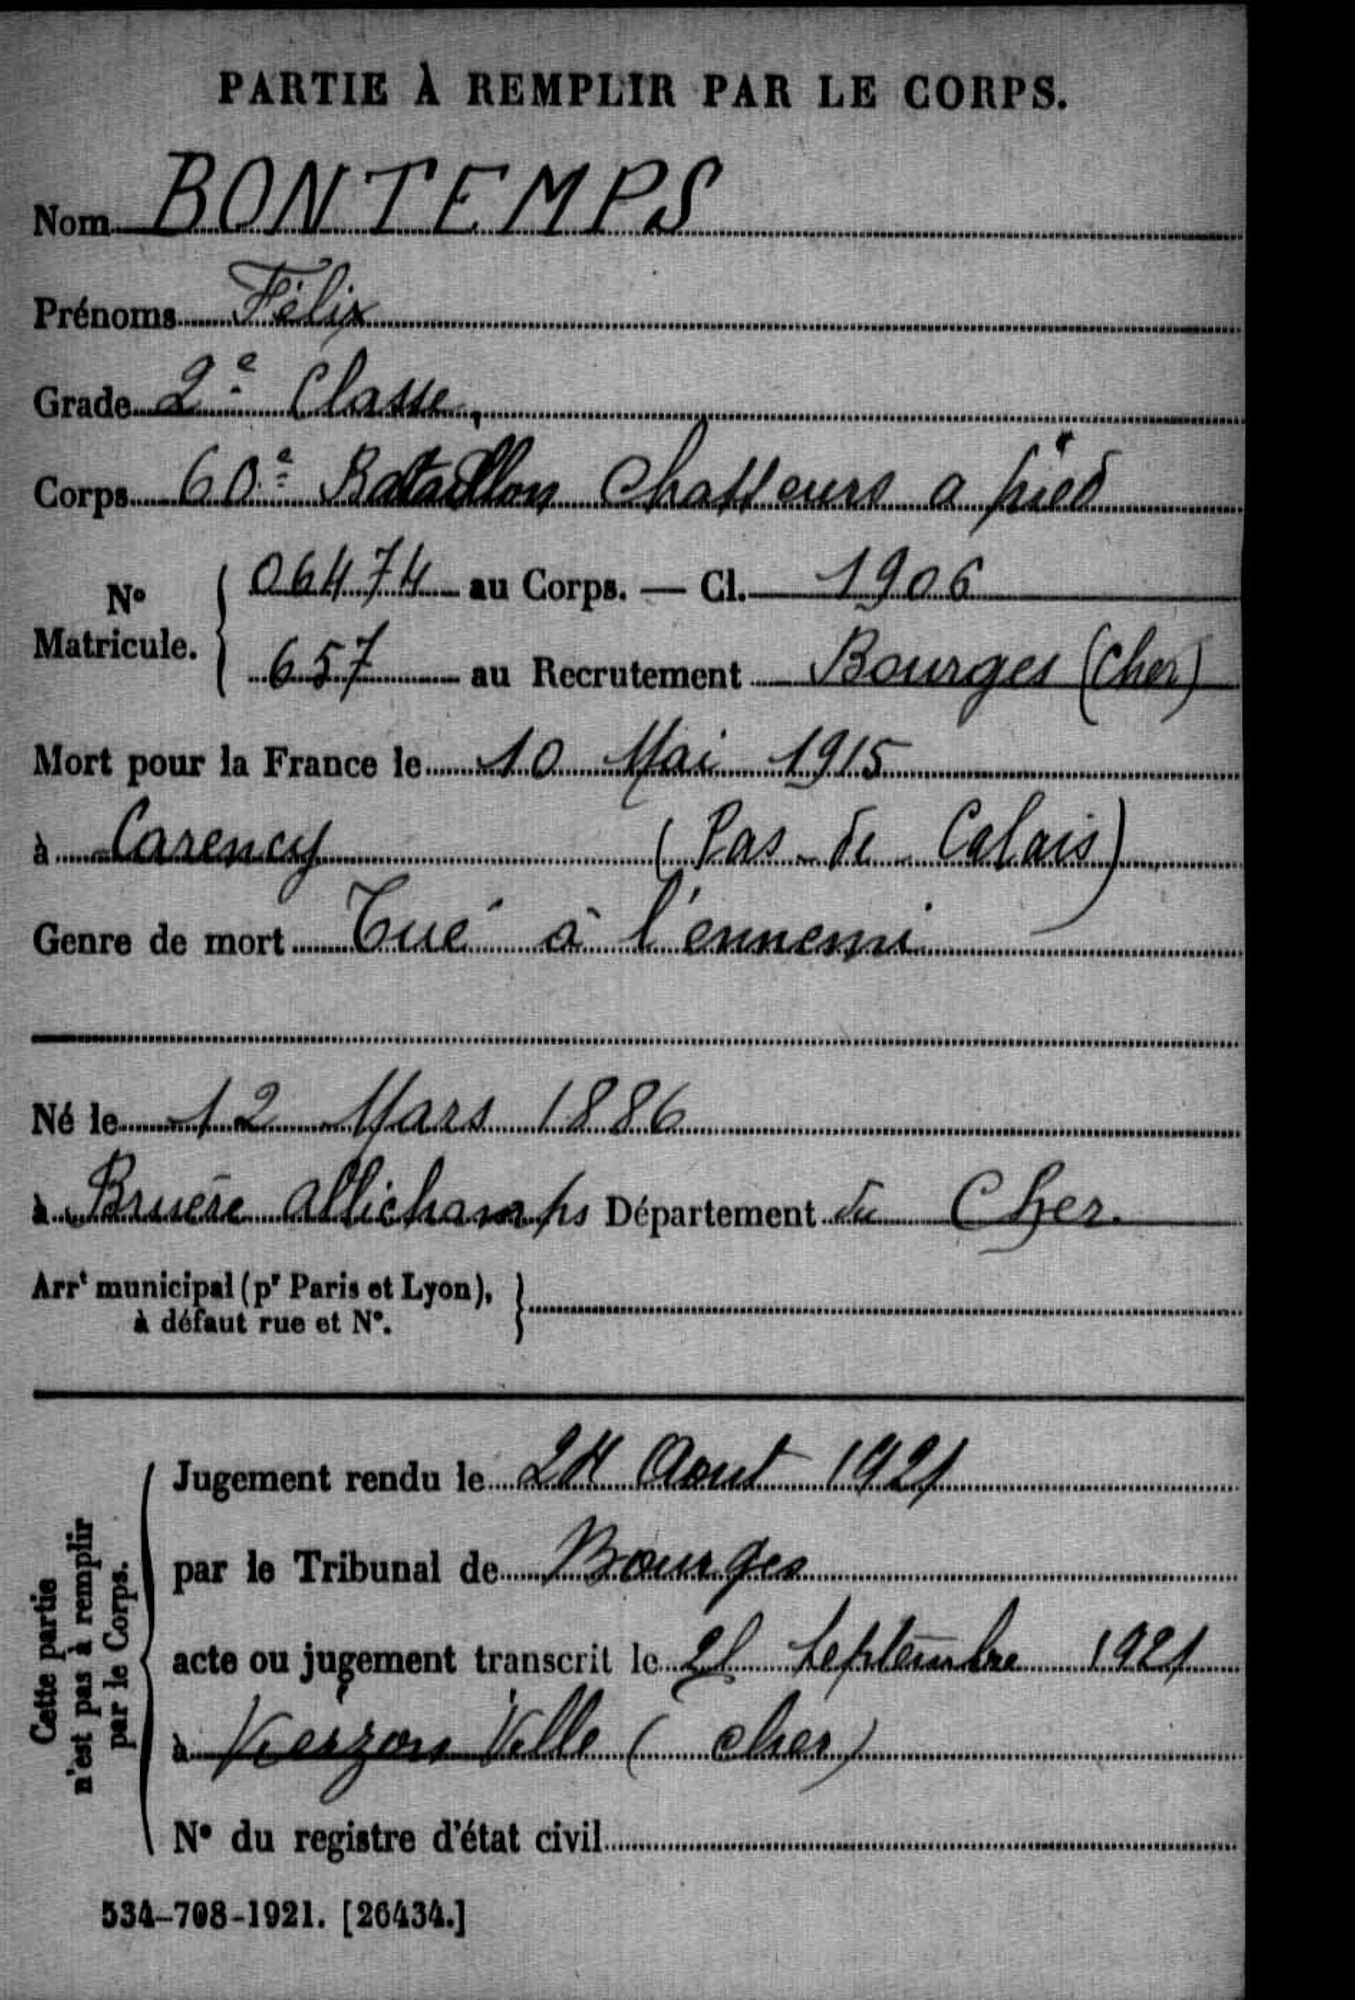 PARTIE À REMPLIR PAR LE CORPS.
Nom BONTEMPS
Prénoms Félix
Grade 2e Classe,
Corps 60e Bataillon Chasseurs a pied
No Matricule. { 06474 au Corps. — Cl. 1906
657 au Recrutement Bourges (Cher)
Mort pour la France le 10 Mai 1915
à Carency (Pas de Calais)
Genre de mort Tué à l'ennemi
Né le 12 Mars 1886
à Bruère allichamps Département du Cher.
Arrt municipal (pr Paris et Lyon), }
à défaut rue et No.
Cette partie
n'est pas à remplir
par le Corps.
Jugement rendu le 24 Aout 1921
par le Tribunal de Bourges
acte ou jugement transcrit le 21 Septembre 1921
à Vierzon Ville (cher)
No du registre d'état civil
534-708-1921. [26434.]